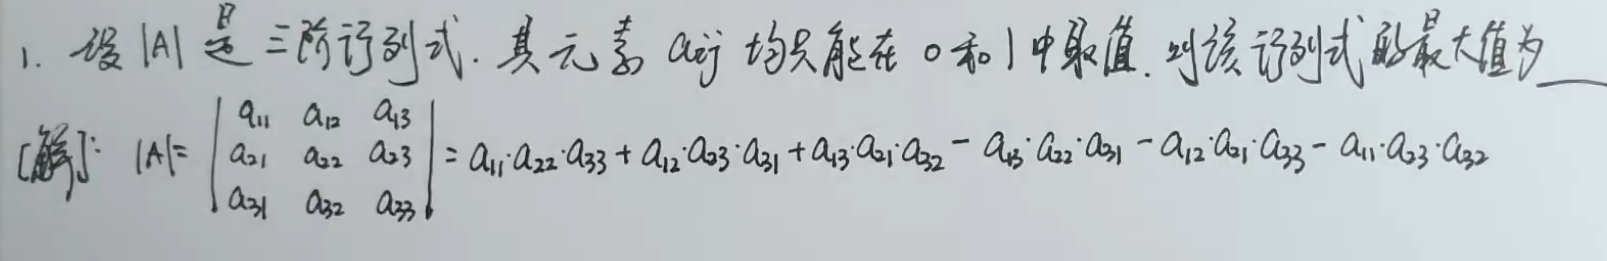 1. 设 |A| 是三阶行列式. 其元素 aij 均只能在 0 和 1 中取值. 则该行列式的最大值为____
[解]: |A|= | a11 a12 a13 |
| a21 a22 a23 | = a11·a22·a33 + a12·a23·a31 + a13·a21·a32 - a13·a22·a31 - a12·a21·a33 - a11·a23·a32
| a31 a32 a33 |